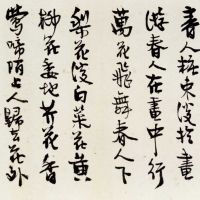 春人妝束淡於畫
游春人在畫中行
萬花飛舞春人下
梨花淡白菜花黃
柳花委地芥花香
鶯啼陌上人歸去花外